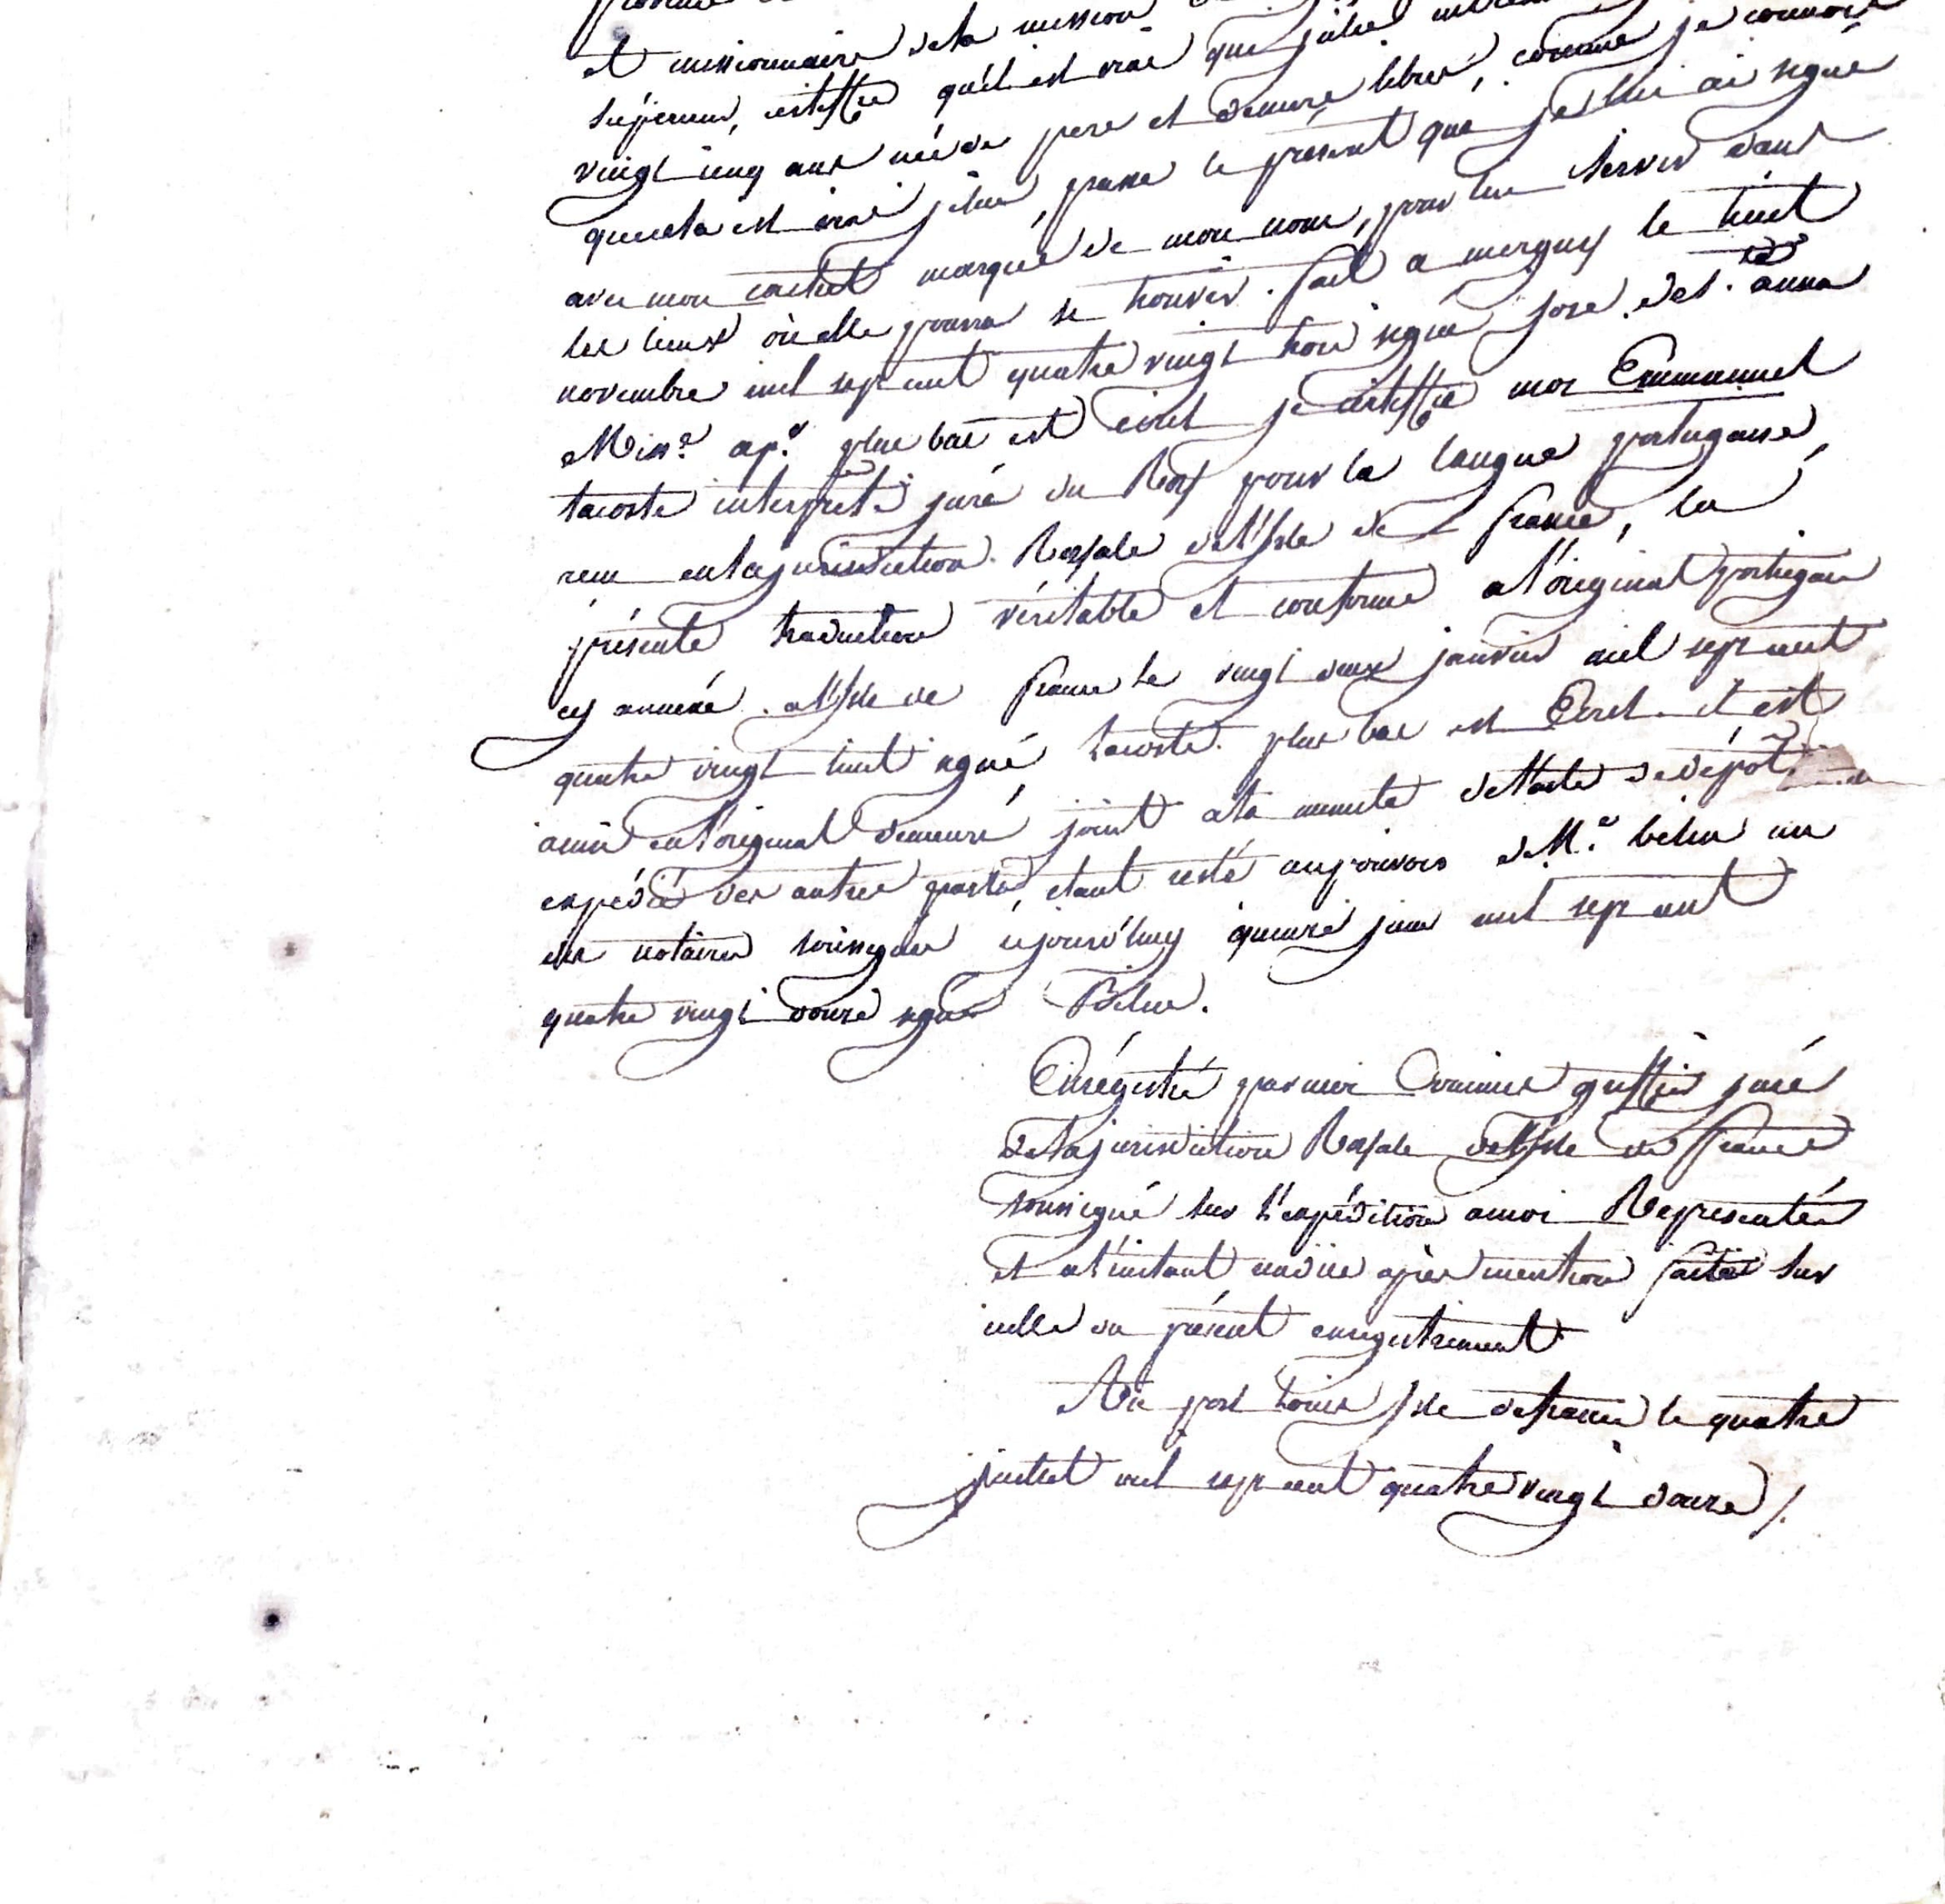 et missionnaire de la mission
supérieur, certiffie qu'il est vrai que julie comme je connois
vingt cinq ans née de pere et de mere libres,
que cela est vrai je lui passe le présent que je lui ai signé
avec mon cachet marqué de mon nom, pour lui servir dans
les lieux où elle pourra se trouver. fait a merguy le huit
novembre mil sept cent quatre vingt trois signé jose. de st. anna
Miss.re ap.e plus bas est écrit je certiffie moi Emmanuel
lacoste interprête juré du Roy pour la langue portugaise,
recu en la jurisdiction Royale de l'Isle de france, la
présente traduction véritable et conforme a l'original portugais
cy annexé. a l'Isle de france le vingt deux janvier mil sept cent
quatre vingt huit signé, lacoste. plus bas est Ecrit. il est
ainsi en l'original demeuré joint a la minute de l'acte de dépôt
expédié des autres parts, étant resté au pouvoir de M.e belin un
des notaires soussignés cejourd'huy quinze juin mil sept cent
quatre vingt douze signé Belin.
Enrégistré par moi commis greffier juré
de la jurisdiction Royale de l'Isle de france
soussigné sur l'expédition a moi Représentée
et a l'instant rendue après mention faite sur
icelle du présent enregistrement
Au port Louis Isle de france le quatre
juillet mil sept cent quatre vingt douze /.